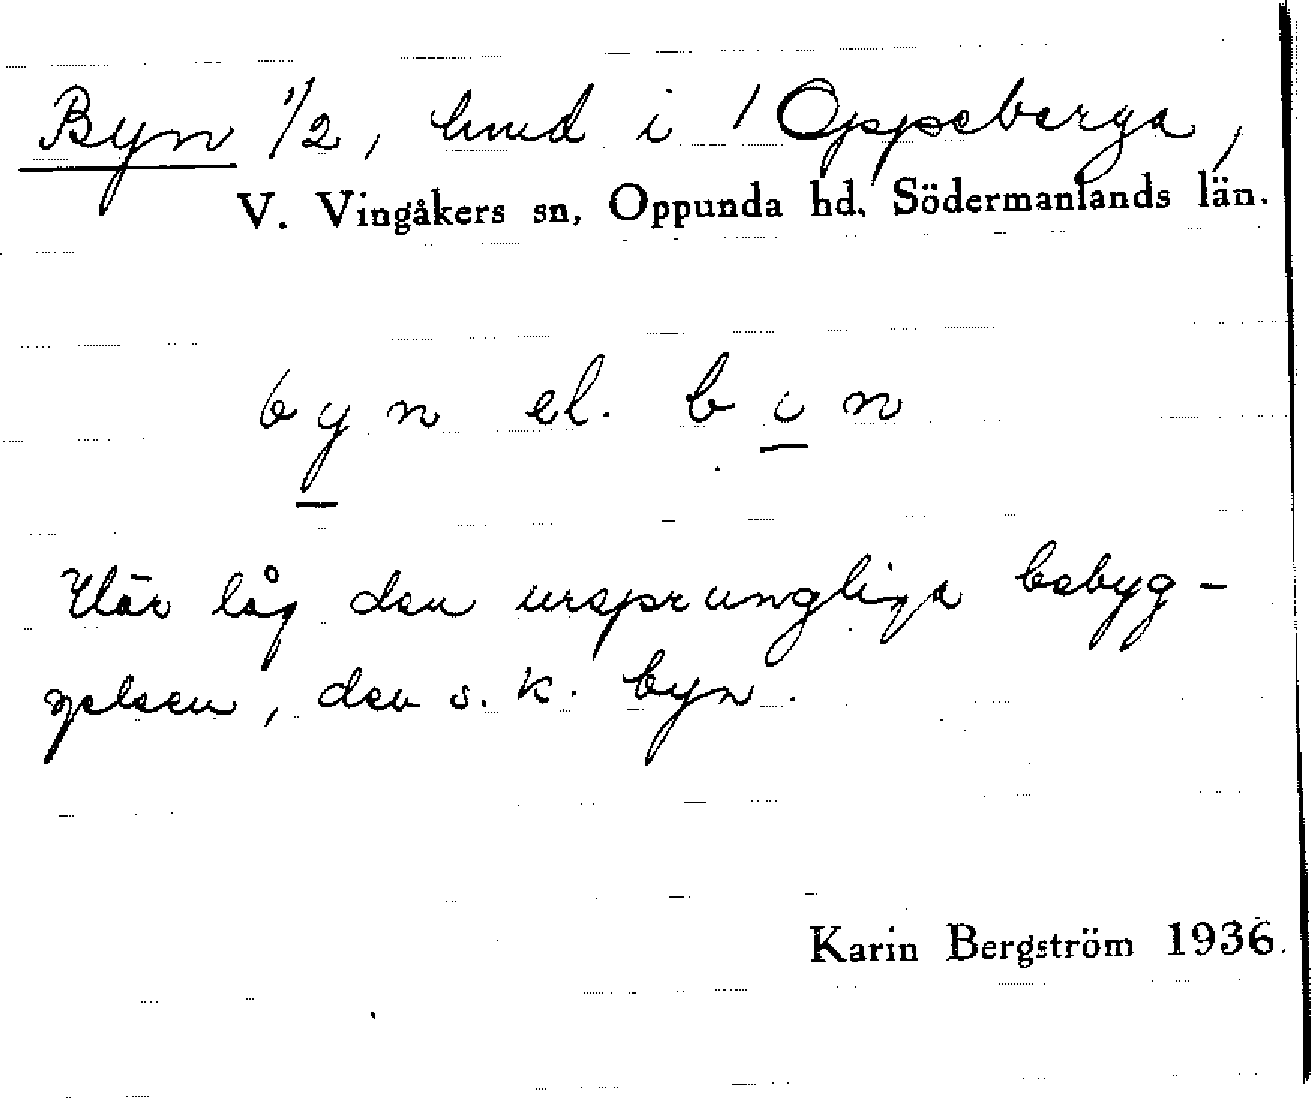 Byn 1/2, hmd i 1 Oppeberga,
V. Vingåkers sn, Oppunda hd, Södermanlands län.
byn el. b n
Här låg den ursprungliga bebyg-
gelsen, den s. k. byn.
Karin Bergström 1936.